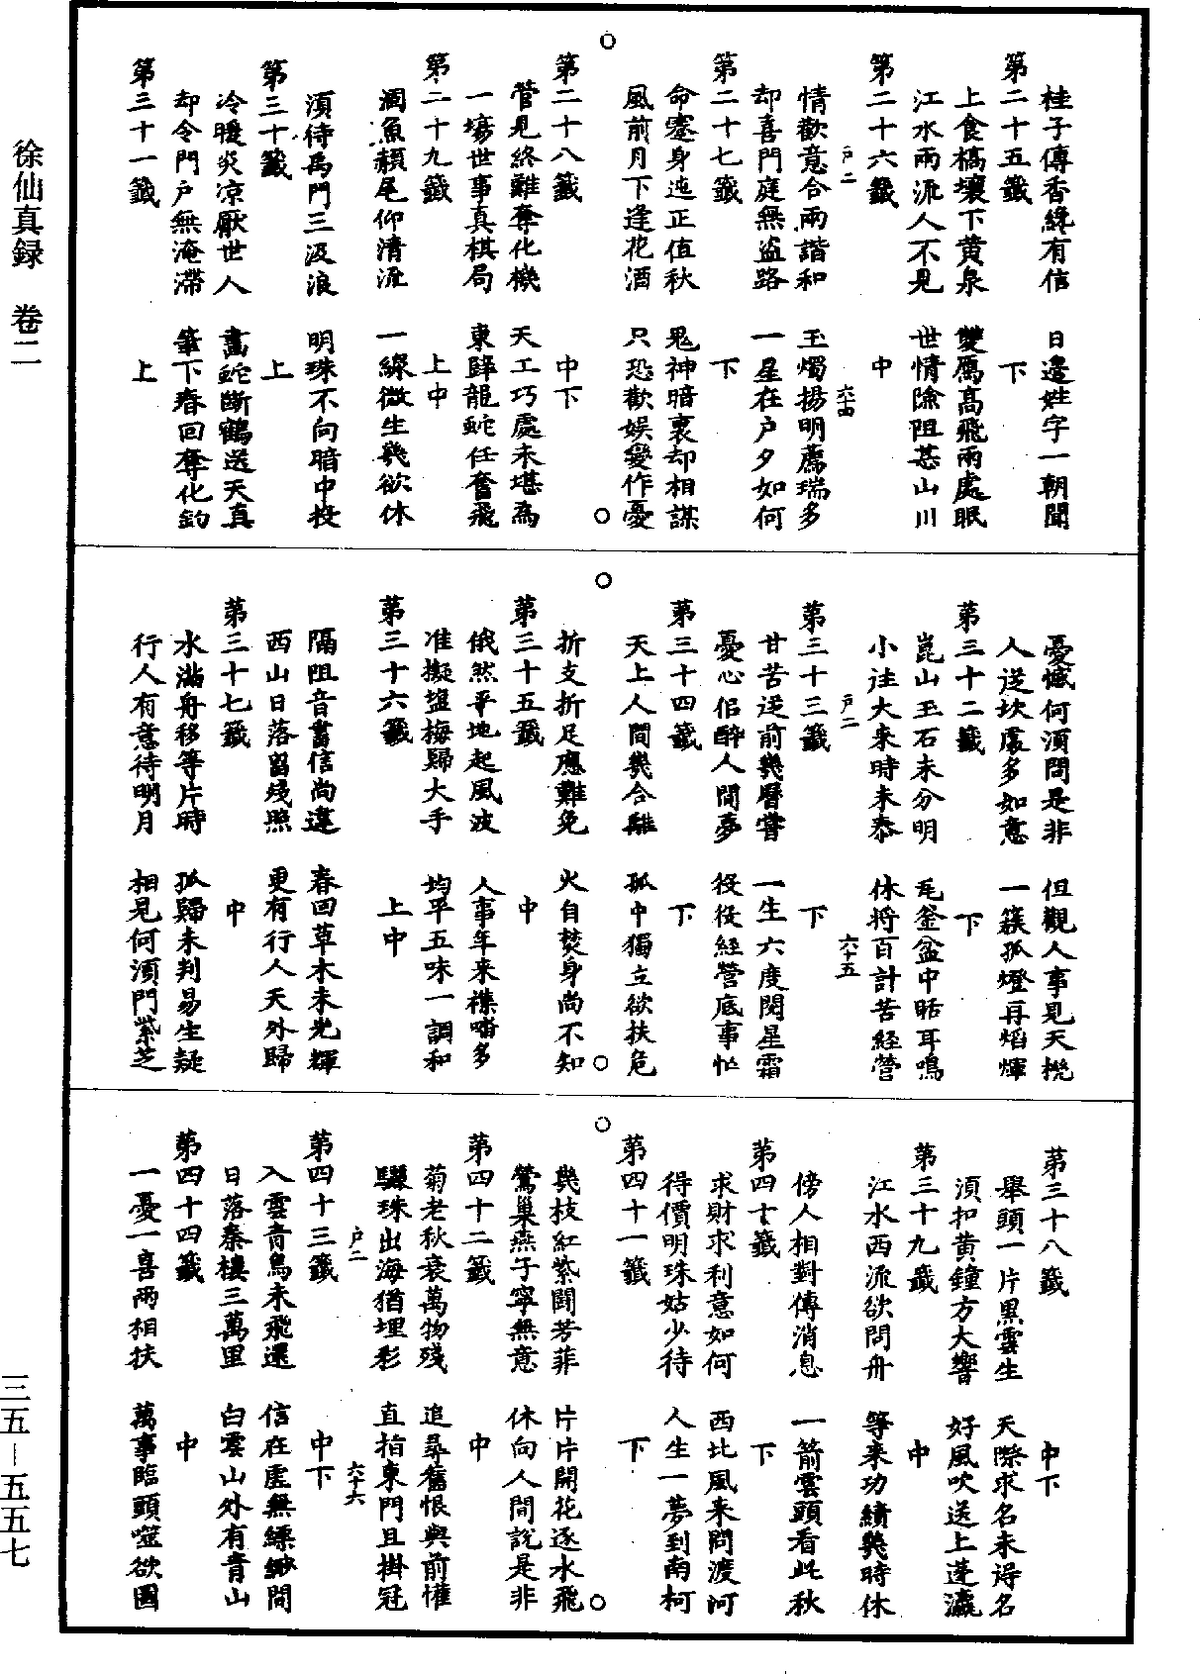 徐仙真録　卷二
三五—五五七
桂子傳香綘有信　日邊姓字一朝聞
第二十五籤　下
上食槁壤下黄泉　雙鴈髙飛兩處眠
江水兩流人不見　世情險阻甚山川
第二十六籤　中
戶二　六十四
情歡意合兩諧和　玉燭揚明薦瑞多
却喜門庭無盗路　一星在户夕如何
第二十七籤　下
命蹇身迍正值秋　鬼神暗裏却相謀
風前月下逢花酒　只恐歡娯變作憂
第二十八籤　中下
管見終難奪化機　天工巧處未堪為
一塲世事真棋局　東歸龍蛇任奮飛
第二十九籤　上中
涸魚頳尾仰清流　一線微生㡬欲休
湏待禹門三汲浪　明珠不向暗中投
第三十籤　上
冷暖炎凉厭世人　畵蛇斷鶴送天真
却令門户無淹滯　筆下春回奪化鈞
第三十一籤　上
憂慽何湏問是非　但觀人事見天機
人送坎處多如意　一簇孤燈再焰輝
第三十二籤　下
崑山玉石未分明　毛釜盆中聒耳鳴
小往大来時未泰　休将百計苦經營
戶二　六十五
第三十三籤　下
甘苦送前㡬曆嘗　一生六度閲星霜
憂心佀醉人間夢　役役經營底事忙
第三十四籤　下
天上人間㡬合離　孤中獨立欲扶危
折支折足應難免　火自焚身尚不知
第三十五籤　中
俄然平地起風波　人事年来襍㗫多
准擬塩梅歸大手　均平五味一調和
第三十六籤　上中
隔阻音書信尚違　春回草木未光輝
西山日落留殘照　更有行人天外歸
第三十七籤　中
水滿舟移等片時　孤歸未判易生疑
行人有意待明月　相見何湏門紫芝
第三十八籤　中下
舉頭一片黒雲生　天際求名未得名
湏扣黄鐘方大響　好風吹送上蓬瀛
第三十九籤　中
江水西流欲問舟　等来功績㡬時休
傍人相對傳消息　一箭雲頭看此秋
第四十籤　下
求財求利意如何　西北風来問渡河
得價明珠姑少待　人生一夢到南柯
第四十一籤　下
㡬枝紅紫鬪芳菲　片片開花逐水飛
鶯巢燕子寧無意　休向人間説是非
第四十二籤　中
菊老秋衰萬物殘　追尋舊恨與前懽
驪珠出海猶埋彩　直指東門且掛冠
戶二　六十六
第四十三籤　中下
入雲青鳥未飛還　信在虚無縹緲間
日落秦樓三萬里　白雲山外有青山
第四十四籤　中
一憂一喜兩相扶　萬事臨頭噬欲圖